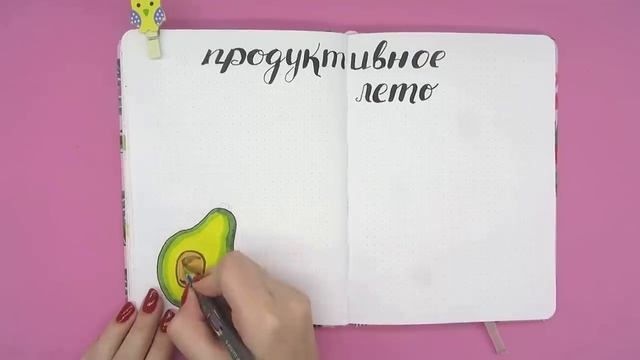 продуктивное
лето